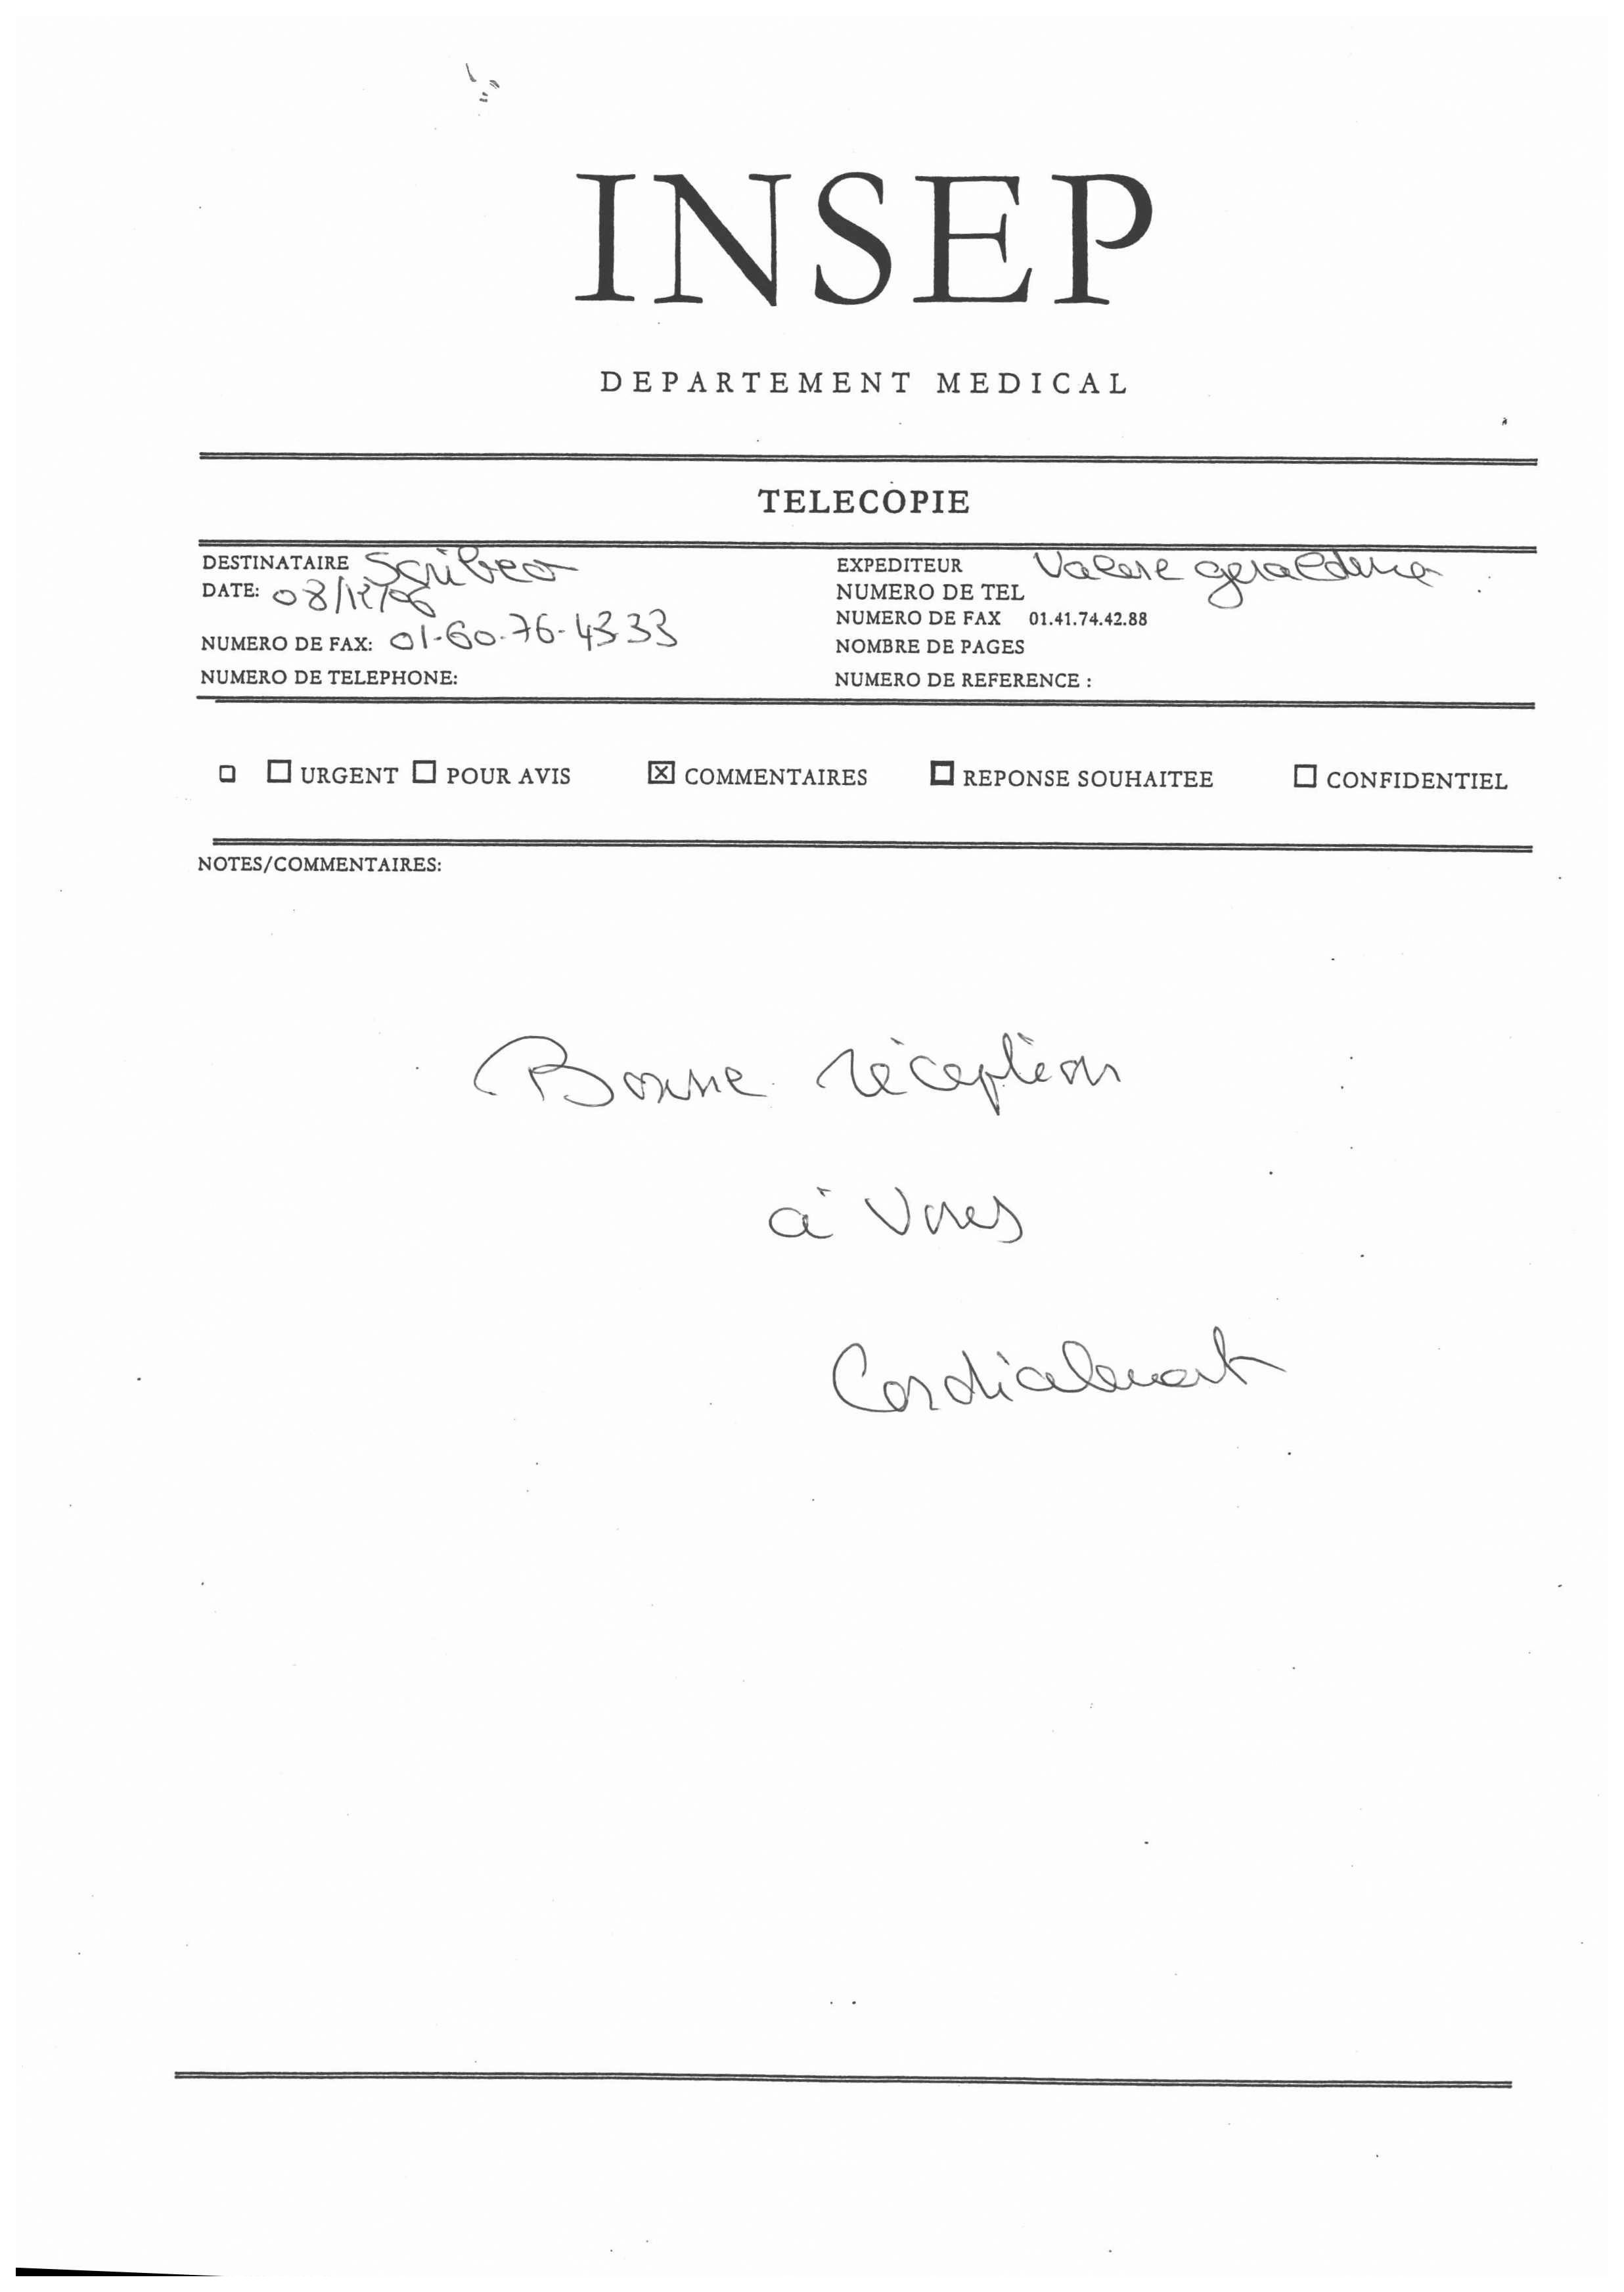 INSEP
DEPARTEMENT MEDICAL
TELECOPIE
DESTINATAIRE Scribeo
DATE: 08/12/06
NUMERO DE FAX: 01-60-76-43 33
NUMERO DE TELEPHONE:
EXPEDITEUR Valere geraldine
NUMERO DE TEL
NUMERO DE FAX 01.41.74.42.88
NOMBRE DE PAGES
NUMERO DE REFERENCE :
☐ ☐ URGENT ☐ POUR AVIS ☒ COMMENTAIRES ☐ REPONSE SOUHAITEE ☐ CONFIDENTIEL
NOTES/COMMENTAIRES:
Bonne réception
à vous
Cordialement